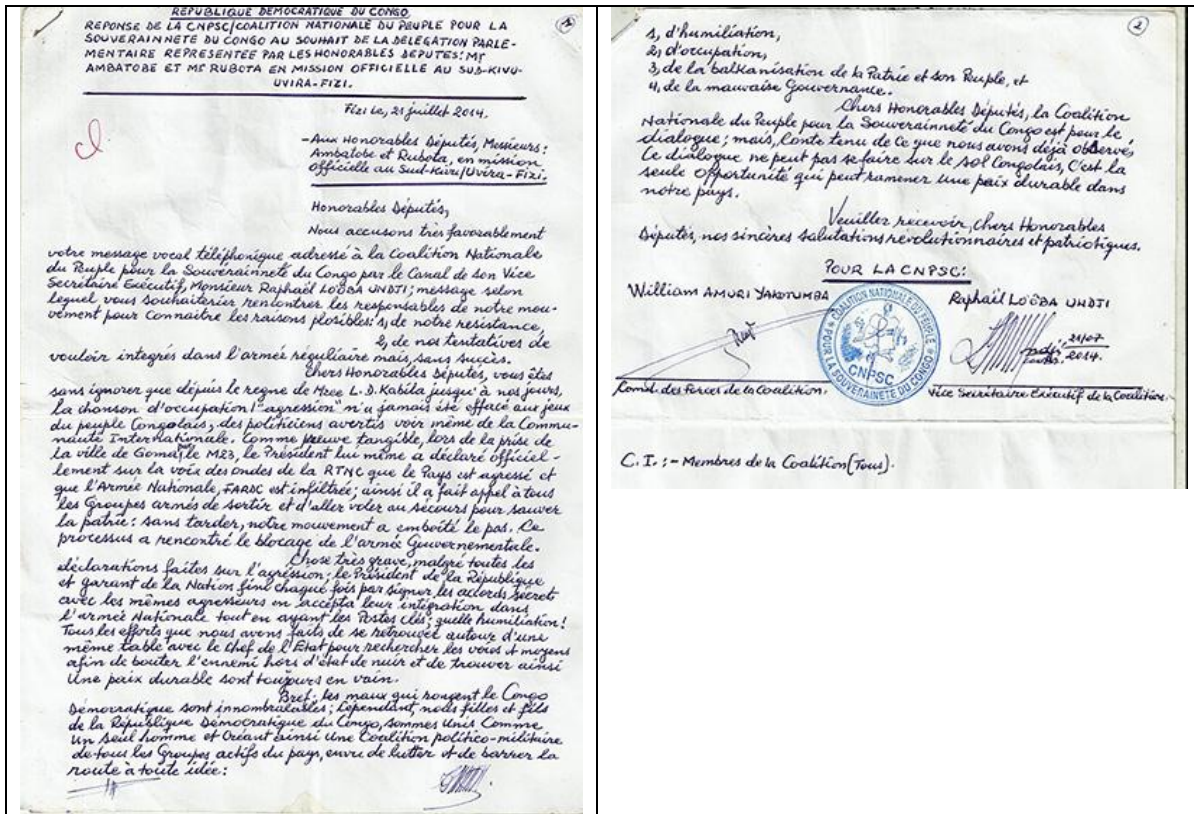 REPUBLIQUE DEMOCRATIQUE DU CONGO
1
REPONSE DE LA CNPSC/COALITION NATIONALE DU PEUPLE POUR LA
SOUVERAINNETE DU CONGO AU SOUHAIT DE LA DELEGATION PARLE-
MENTAIRE REPRESENTEE PAR LES HONORABLES DEPUTES: Mr
AMBATOBE ET Mr RUBOTA EN MISSION OFFICIELLE AU SUD-KIVU-
UVIRA-FIZI.
Fizi Le, 21 juillet 2014.
-Aux Honorables Députés, Messieurs:
Ambatobe et Rubota, en mission
officielle au Sud-Kivu/Uvira-Fizi.
Honorables Députés,
Nous accusons très favorablement
votre message vocal téléphonique adressé à la Coalition Nationale
du Peuple pour la Souverainneté du Congo par le Canal de son Vice
Secrétaire Exécutif, Monsieur Raphaël LO'ÔBA UNDJI; message selon
lequel vous souhaiterier rencontrer les responsables de notre mou-
vement pour connaitre les raisons plosibles: 1, de notre resistance,
2, de nos tentatives de
vouloir integrés dans l'armée réguliaire mais, sans succès.
Chers Honorables Députés, vous êtes
sans ignorer que depuis le regne de Mzee L.D. Kabila jusqu'à nos jours,
la chanson d'occupation/"agression" n'a jamais été effacé aux jeux
du peuple Congolais, des politiciens avertis voir même de la Commu-
nauté Internationale. Comme preuve tangible, lors de la prise de
la ville de Goma par le M23, le Président lui même a déclaré officiel-
lement sur la voix des ondes de la RTNC que le Pays est agressé et
que l'Armée Nationale, FARDC est infiltrée; ainsi il a fait appel à tous
les Groupes armés de sortir et d'aller voler au sécours pour sauver
la patrie: sans tarder, notre mouvement a emboité le pas. Ce
processus a rencontré le blocage de l'armée Gouvernementale.
Chose très grave, malgré toutes les
déclarations faites sur l'agréssion; le Président de la République
et garant de la Nation finit chaque fois par signer les accords secrets
avec les mêmes agresseurs en accepta leur intégration dans
l'armée Nationale tout en ayant les Postes clés; quelle humiliation!
Tous les efforts que nous avons faits de se retrouver autour d'une
même table avec le Chef de l'Etat pour rechercher les voies et moyens
afin de bouter l'ennemi hors d'état de nuir et de trouver ainsi
Une paix durable sont toujours en vain.
Bref; les maux qui rongent le Congo
Démocratique sont innombrables; Cependant, nous filles et fils
de la République Démocratique du Congo, sommes Unis Comme
Un seul homme et Créant ainsi Une Coalition politico-militaire
de tous les Groupes actifs du pays, en vu de lutter et de barrer la
route à toute idée:
2
1, d'humiliation,
2, d'occupation,
3, de la balkanisation de la Patrie et son Peuple, et
4, de la mauvaise Gouvernance.
Chers Honorables Députés, la Coalition
Nationale du Peuple pour la Souverainneté du Congo est pour le
dialogue; mais, Conte tenu de Ce que nous avons déjà observés
Ce dialogue ne peut pas se faire sur le sol Congolais, C'est la
seule Opportunité qui peut ramener Une paix durable dans
notre pays.
Veuillez recevoir, Chers Honorables
Députés, nos sincères salutations révolutionnaires et patriotiques.
POUR LA CNPSC:
William AMURI YAKOTUMBA
Raphaël LO'ÔBA UNDJI
COALITION NATIONALE DU PEUPLE
POUR LA SOUVERAINETE DU CONGO
CNPSC
21/07
2014.
Comd. des Forces de la Coalition.
Vice Secrétaire Exécutif de la Coalition.
C.I.: - Membres de la Coalition (Tous).